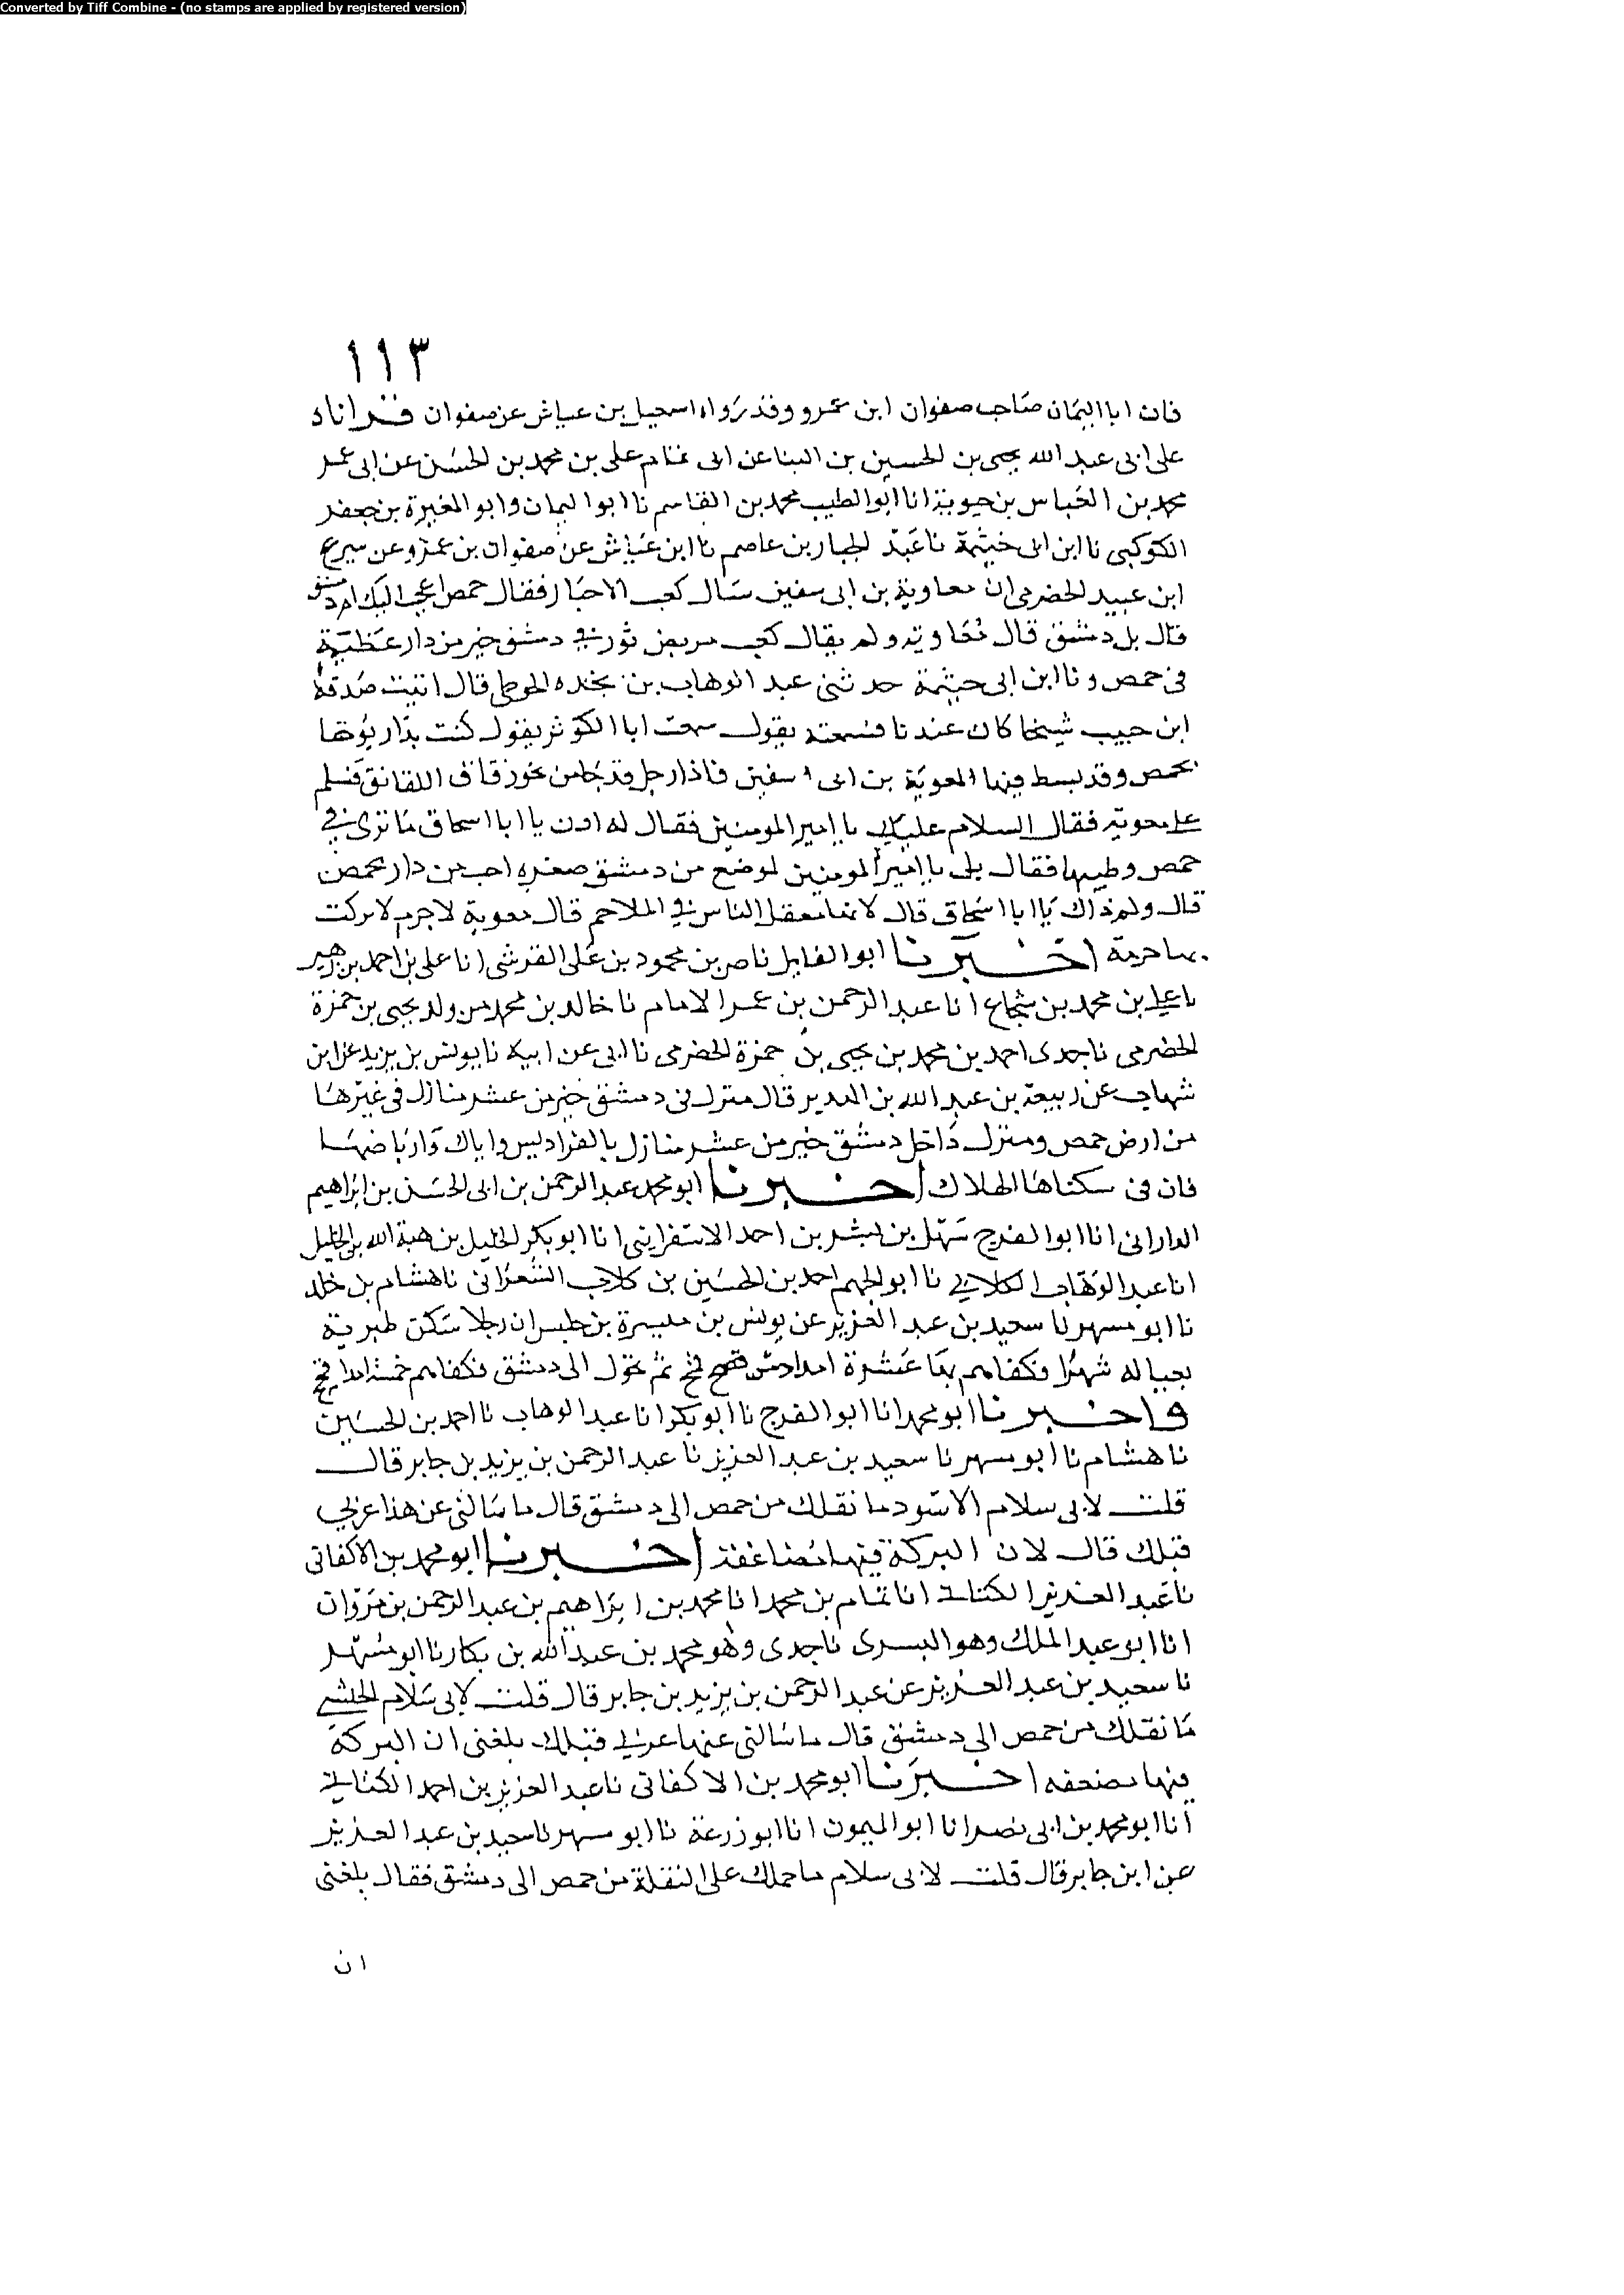 Converted by Tiff Combine - (no stamps are applied by registered version)
١١٣
فان ابا اليمان صاحب صفوان ابن عمرو وقد رواه اسمعيل بن عياش عن صفوان قراناه
على ابى عبد الله يحيى بن الحسين بن البنا عن ابى تمام على بن محمد بن الحسن عن ابى عمر
محمد بن العباس بن حيوية انا ابو الطيب محمد بن القاسم نا ابو اليمان وابو المغيرة بن جعفر
الكوكبى نا ابن ابى خيثمة نا عبد الجبار بن عاصم نا ابن عياش عن صفوان بن عمرو عن سريح
ابن عبيد الحضرمى ان معاوية بن ابى سفين سال كعب الاحبار فقال حمص اعجب اليك ام دمشق
قال بل دمشق قال معاوية ولم يقال كعب مربض ثور فى دمشق خير من دار عظيمة
فى حمص ونا ابن ابى خيثمة حدثنى عبد الوهاب بن نجده الحوطى قال اتيت صدقة
ابن حبيب شيخا كان عندنا فسمعته يقول سمعت ابا الكوثر يقول كنت بدار يوحنا
بحمص وقد بسط فيها لمعوية بن ابى سفين فاذا رجل قد جا من نحو زقاق اللقانق فسلم
على معوية فقال السلام عليك يا امير المومنين فقال له ادن يا ابا اسحاق ما ترى فى
حمص وطيبها فقال بلى يا امير المومنين لموضع من دمشق صغيره احب من دار بحمص
قال ولم ذاك يا ابا اسحاق قال لانها معقل الناس فى الملاحم قال معوية لا جرم لا تركت
بها حرمة اخبرنا ابو الفضايل ناصر بن محمود بن على القرشى انا على بن احمد بن زهير
نا على بن محمد بن شجاع انا عبد الرحمن بن عمر الامام نا خالد بن محمد من ولد يحيى بن حمزة
الحضرمى نا جدى احمد بن محمد بن يحيى بن حمزة الحضرمى نا ابى عن ابيه نا يونس بن يزيد عن ابن
شهاب عن ربيعة بن عبد الله بن الهدير قال منزل فى دمشق خير من عشر منازل فى غيرها
من ارض حمص ومنزل داخل دمشق خير من عشر منازل بالفراديس واياك وارباضها
فان فى سكناها الهلاك اخبرنا ابو محمد عبد الرحمن بن ابى الحسن بن ابراهيم
الدارانى انا ابو الفرج سهل بن بشر بن احمد الاسفراينى انا ابو بكر الخليل بن هبة الله بن الخليل
انا عبد الوهاب الكلابى نا ابو الجهم احمد بن الحسين بن كلاب الشعرانى نا هشام بن خلد
نا ابو مسهر نا سعيد بن عبد العزيز عن يونس بن ميسرة بن حلبس ان رجلا سكن طبرية
بعياله شهرا فكفاهم بها عشرة امداد قمح ثم تحول الى دمشق فكفاهم خمسة امداد قمح
واخبرنا ابو محمد انا ابو الفرج نا ابو بكر انا عبد الوهاب نا احمد بن الحسين
نا هشام نا ابو مسهر نا سعيد بن عبد العزيز نا عبد الرحمن بن يزيد بن جابر قال
قلت لابى سلام الاسود ما نقلك من حمص الى دمشق قال ما سالنى عن هذا عربى
قبلك قال لان البركة فيها مضاعفة اخبرنا ابو محمد بن الاكفانى
نا عبد العزيز الكنانى انا تمام بن محمد انا محمد بن ابراهيم بن عبد الرحمن بن مروان
انا ابو عبد الملك وهو البسرى نا جدى وهو محمد بن عبد الله بن بكار نا ابو مسهر
نا سعيد بن عبد العزيز عن عبد الرحمن بن يزيد بن جابر قال قلت لابى سلام الحبشى
ما نقلك من حمص الى دمشق قال ما سالنى عنها عربى قبلك بلغنى ان البركة
فيها مضعفه اخبرنا ابو محمد بن الاكفانى نا عبد العزيز بن احمد الكنانى
انا ابو محمد بن ابى نصر انا ابو الميمون انا ابو زرعة نا ابو مسهر نا سعيد بن عبد العزيز
عن ابن جابر قال قلت لابى سلام ما حملك على النقلة من حمص الى دمشق فقال بلغنى
ان